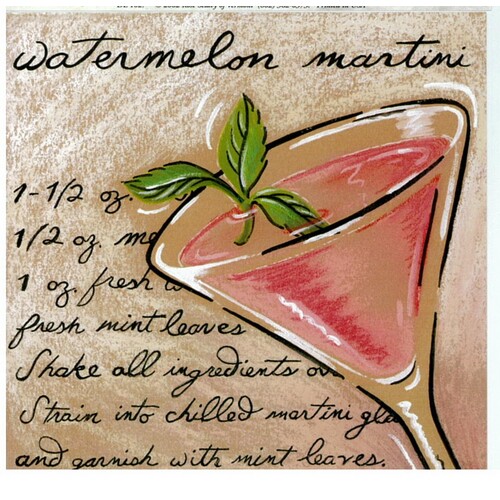 watermelon martini
1-1/2 oz.
1/2 oz. me
1 oz. fresh w
fresh mint leaves
Shake all ingredients ov
Strain into chilled martini gla
and garnish with mint leaves.